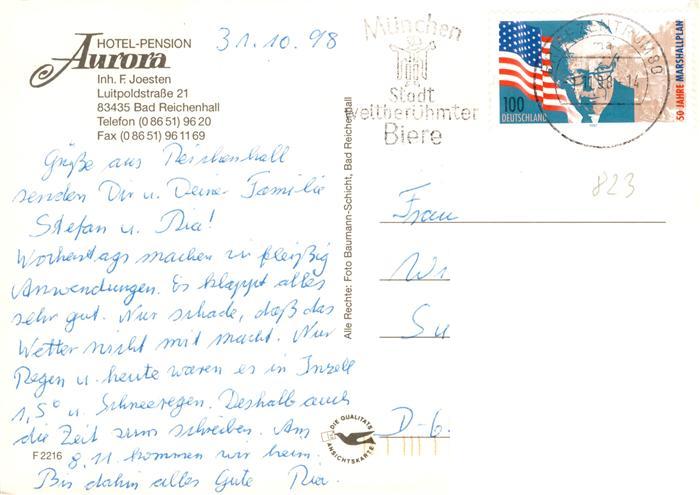 HOTEL-PENSION
Aurora
Inh. F. Joesten
Luitpoldstraße 21
83435 Bad Reichenhall
Telefon (0 86 51) 96 20
Fax (0 86 51) 96 11 69
31.10.98
Grüße aus Reichenhall
senden Dir u. Deiner Familie
Stefan u. Ria!
Wochentags machen wir fleißig
Anwendungen. Es klappt alles
sehr gut. Nur schade, daß das
Wetter nicht mit macht. Nur
Regen u. heute waren es in Inzell
1,5° u. Schneeregen. Deshalb auch
die Zeit zum schreiben. Am
8.11. kommen wir heim.
Bis dahin alles Gute Ria.
F 2216
Alle Rechte: Foto Baumann-Schicht, Bad Reichenhall
DIE QUALITÄTS
ANSICHTSKARTE
München
Stadt
weltberühmter
Biere
100
DEUTSCHLAND
50 JAHRE MARSHALLPLAN
823
Frau
Wi
Su
D-6.